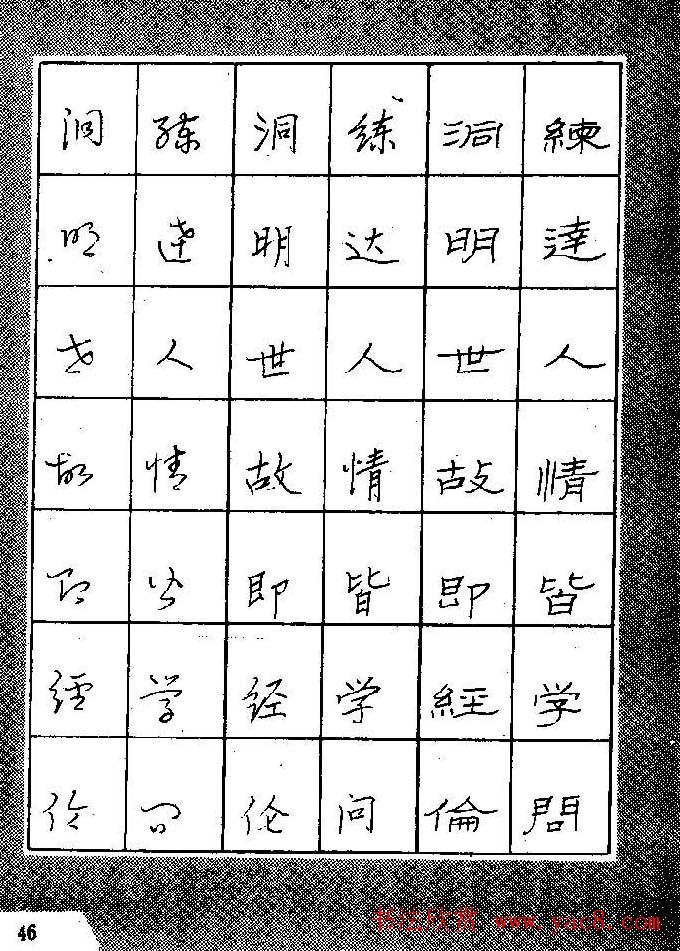 洞 练 洞 练 洞 練
明 達 明 达 明 達
世 人 世 人 世 人
故 情 故 情 故 情
即 皆 即 皆 即 皆
經 学 经 学 經 学
伦 问 伦 问 倫 問
46
书法欣赏 www.yac8.com